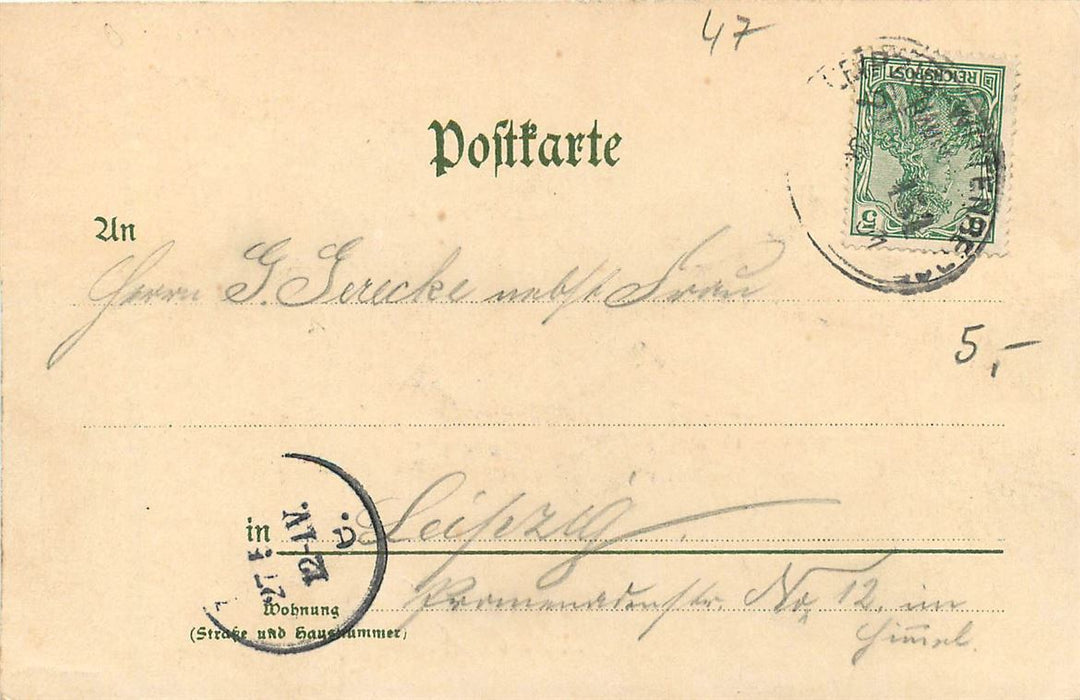 47
Postkarte
REICHSPOST
5
An
Herrn G. Gerecke nebst Frau
5,-
in Leipzig.
27 5
12-1 N.
Wohnung
(Straße und Hausnummer)
Promenadenstr. No. 12. im
Himmel.